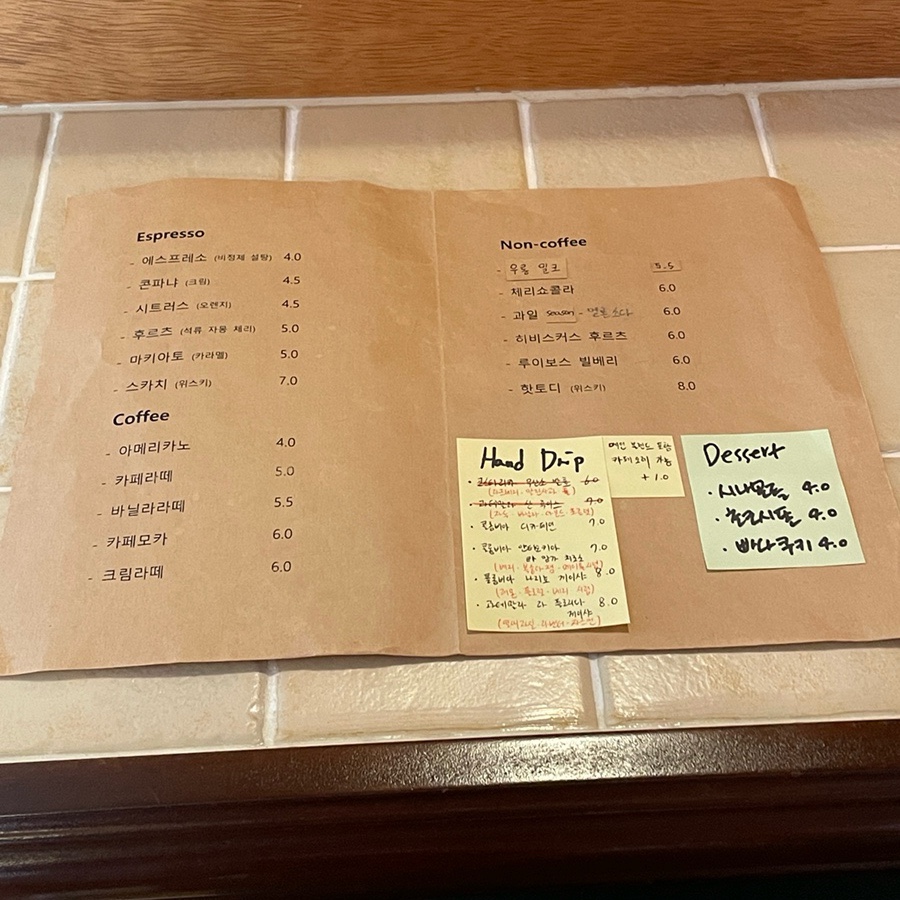 Espresso
- 에스프레소 (비정제 설탕) 4.0
- 콘파냐 (크림) 4.5
- 시트러스 (오렌지) 4.5
- 후르츠 (석류 자몽 체리) 5.0
- 마키아토 (카라멜) 5.0
- 스카치 (위스키) 7.0
Coffee
- 아메리카노 4.0
- 카페라떼 5.0
- 바닐라라떼 5.5
- 카페모카 6.0
- 크림라떼 6.0
Non-coffee
- 우롱 밀크 5.5
- 체리쇼콜라 6.0
- 과일 season - 멜론소다 6.0
- 히비스커스 후르츠 6.0
- 루이보스 빌베리 6.0
- 핫토디 (위스키) 8.0
Hand Drip
6.0
7.0
· 콜롬비아 디카페인 7.0
· 콜롬비아 7.0
· 콜롬비아 나리뇨 게이샤 8.0
· 과테말라 라 플로리다 8.0
게이샤
카페오레 가능
+ 1.0
Dessert
· 4.0
· 4.0
· 4.0